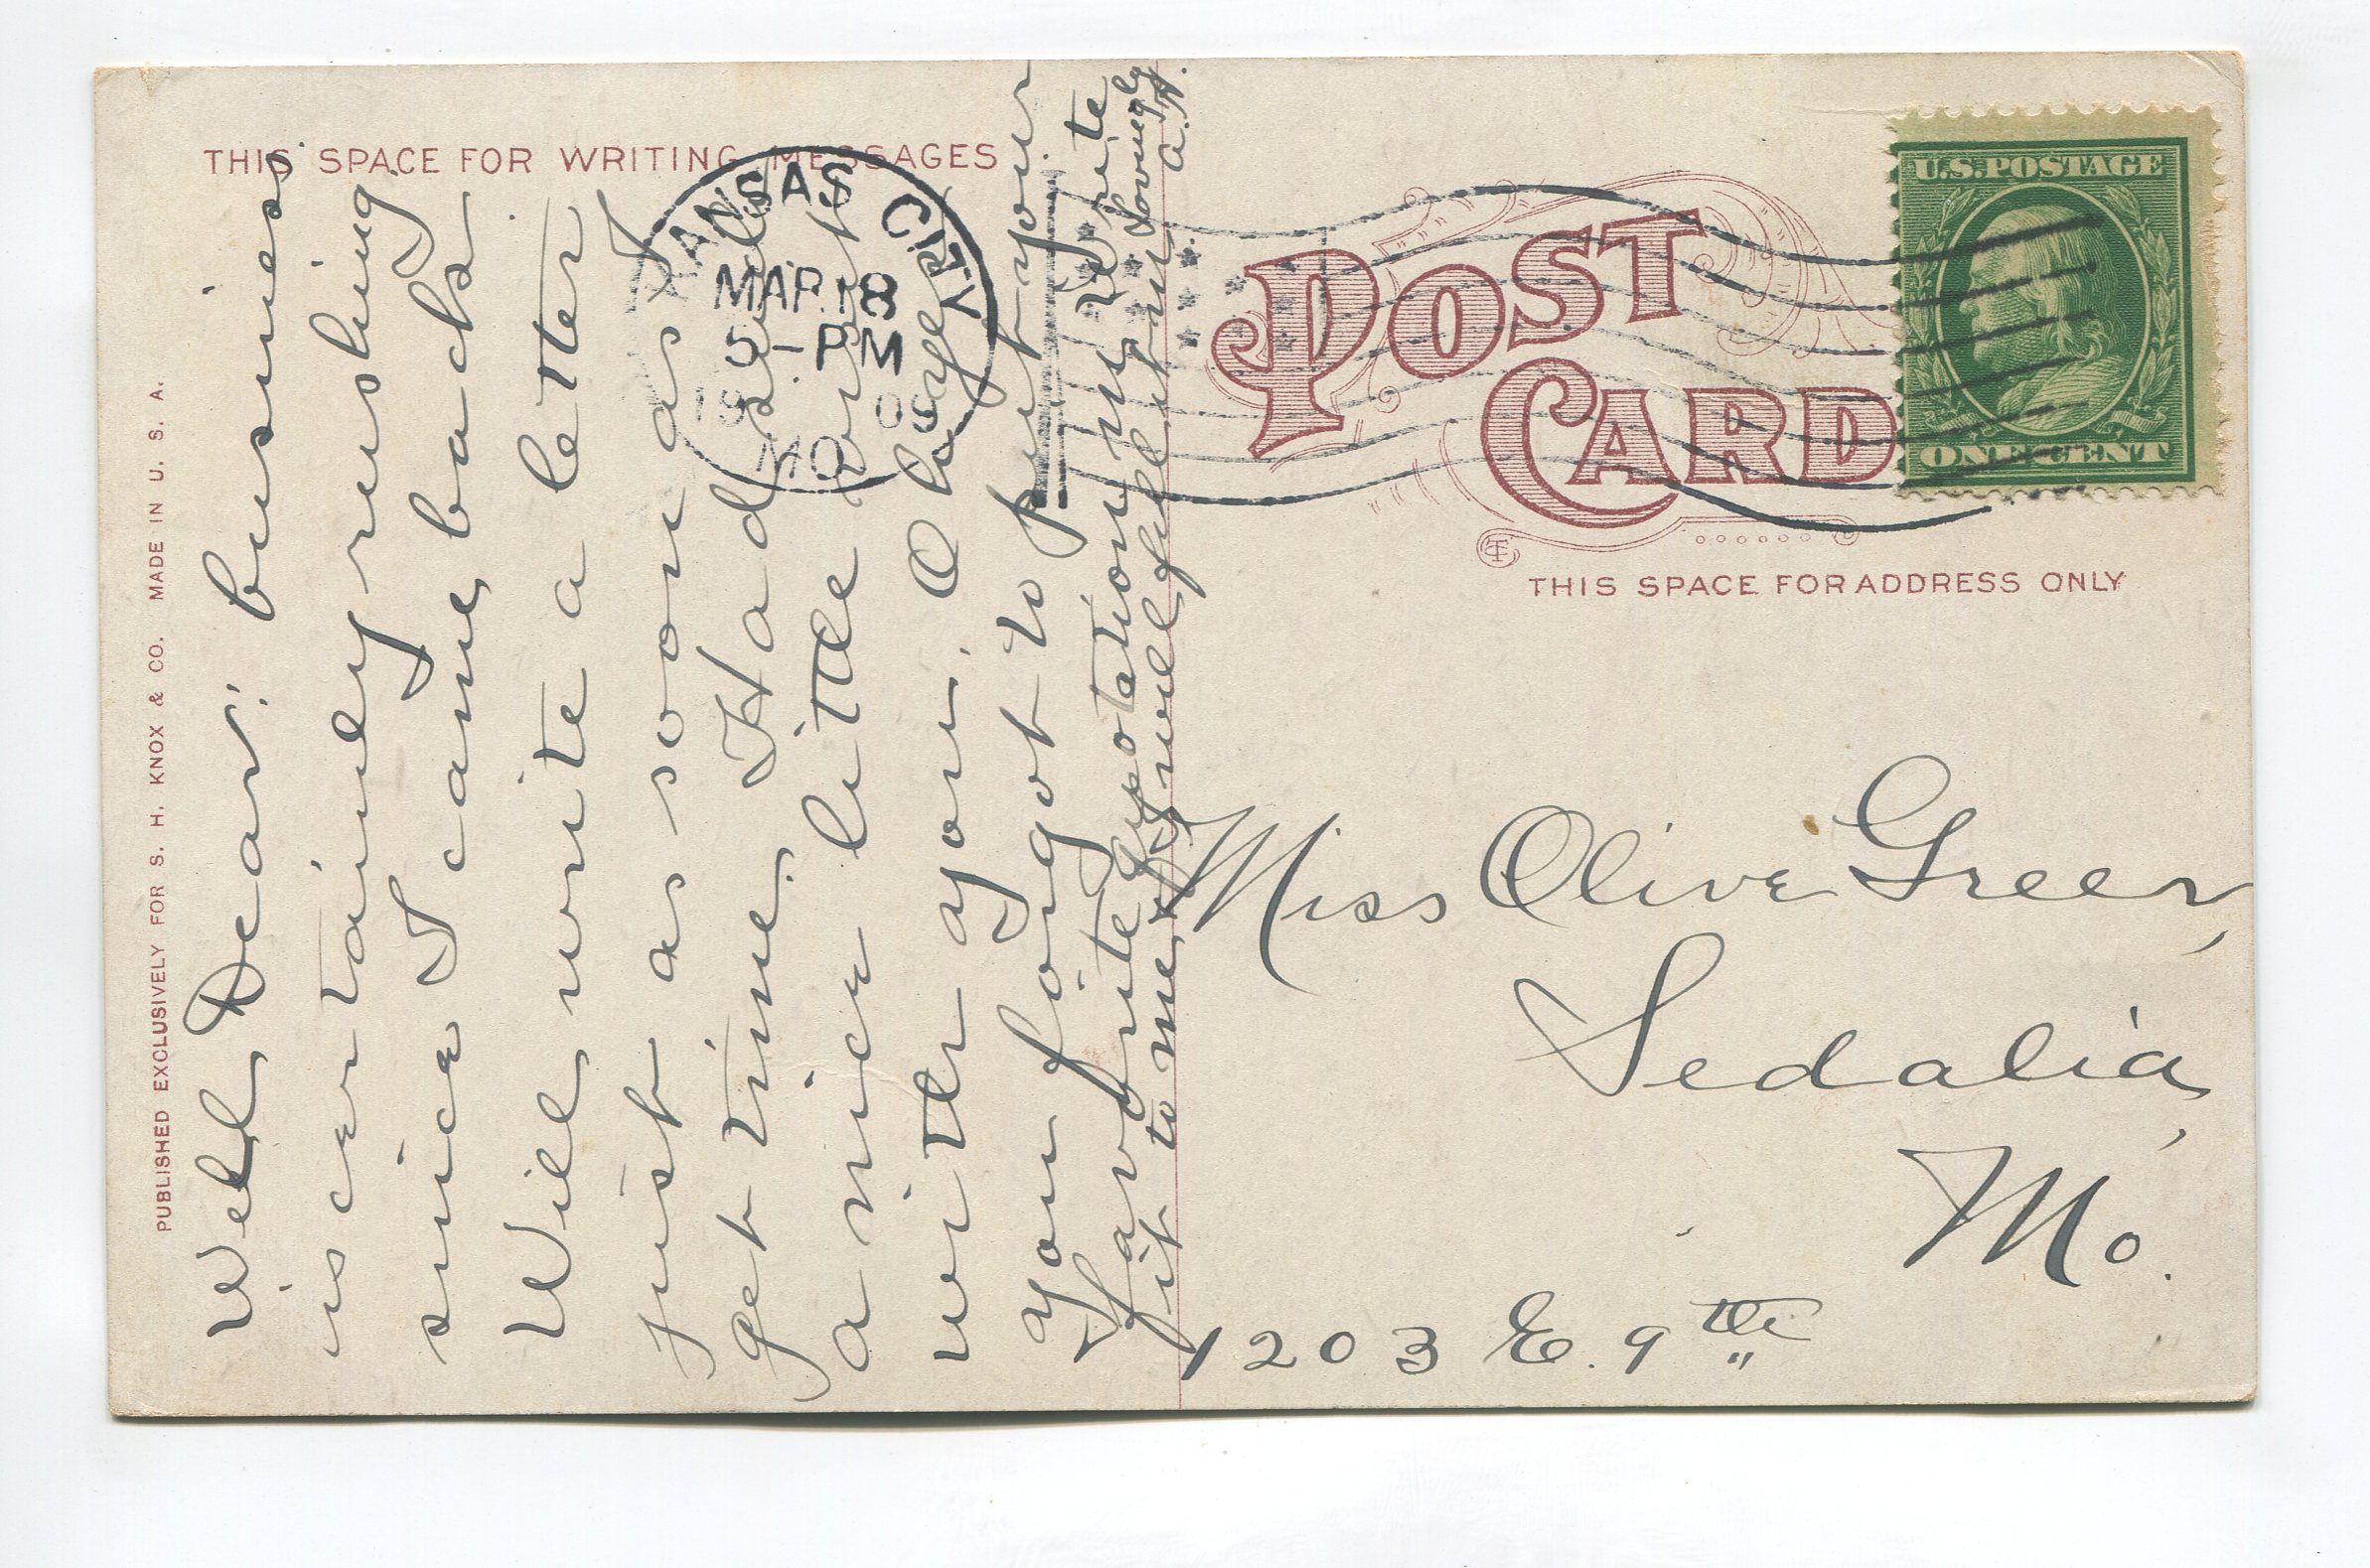 THIS SPACE FOR WRITING MESSAGES
PUBLISHED EXCLUSIVELY FOR S. H. KNOX & CO. MADE IN U. S. A.
Well, Dear: business
is certainly rushing
since I came back.
Will write a letter
just as soon as I
get time. Had such
a nice little visit
with you. O hazel
you forgot to put your
favorite quotation in. Write
it to me, & I will fill it in
Lovingly
A. H.
KANSAS CITY
MAR 18
1 - PM
MO
U.S. POSTAGE
ONE CENT
POST
CARD
THIS SPACE FOR ADDRESS ONLY
Miss Olive Green,
Sedalia,
Mo.
1203 E. 9th